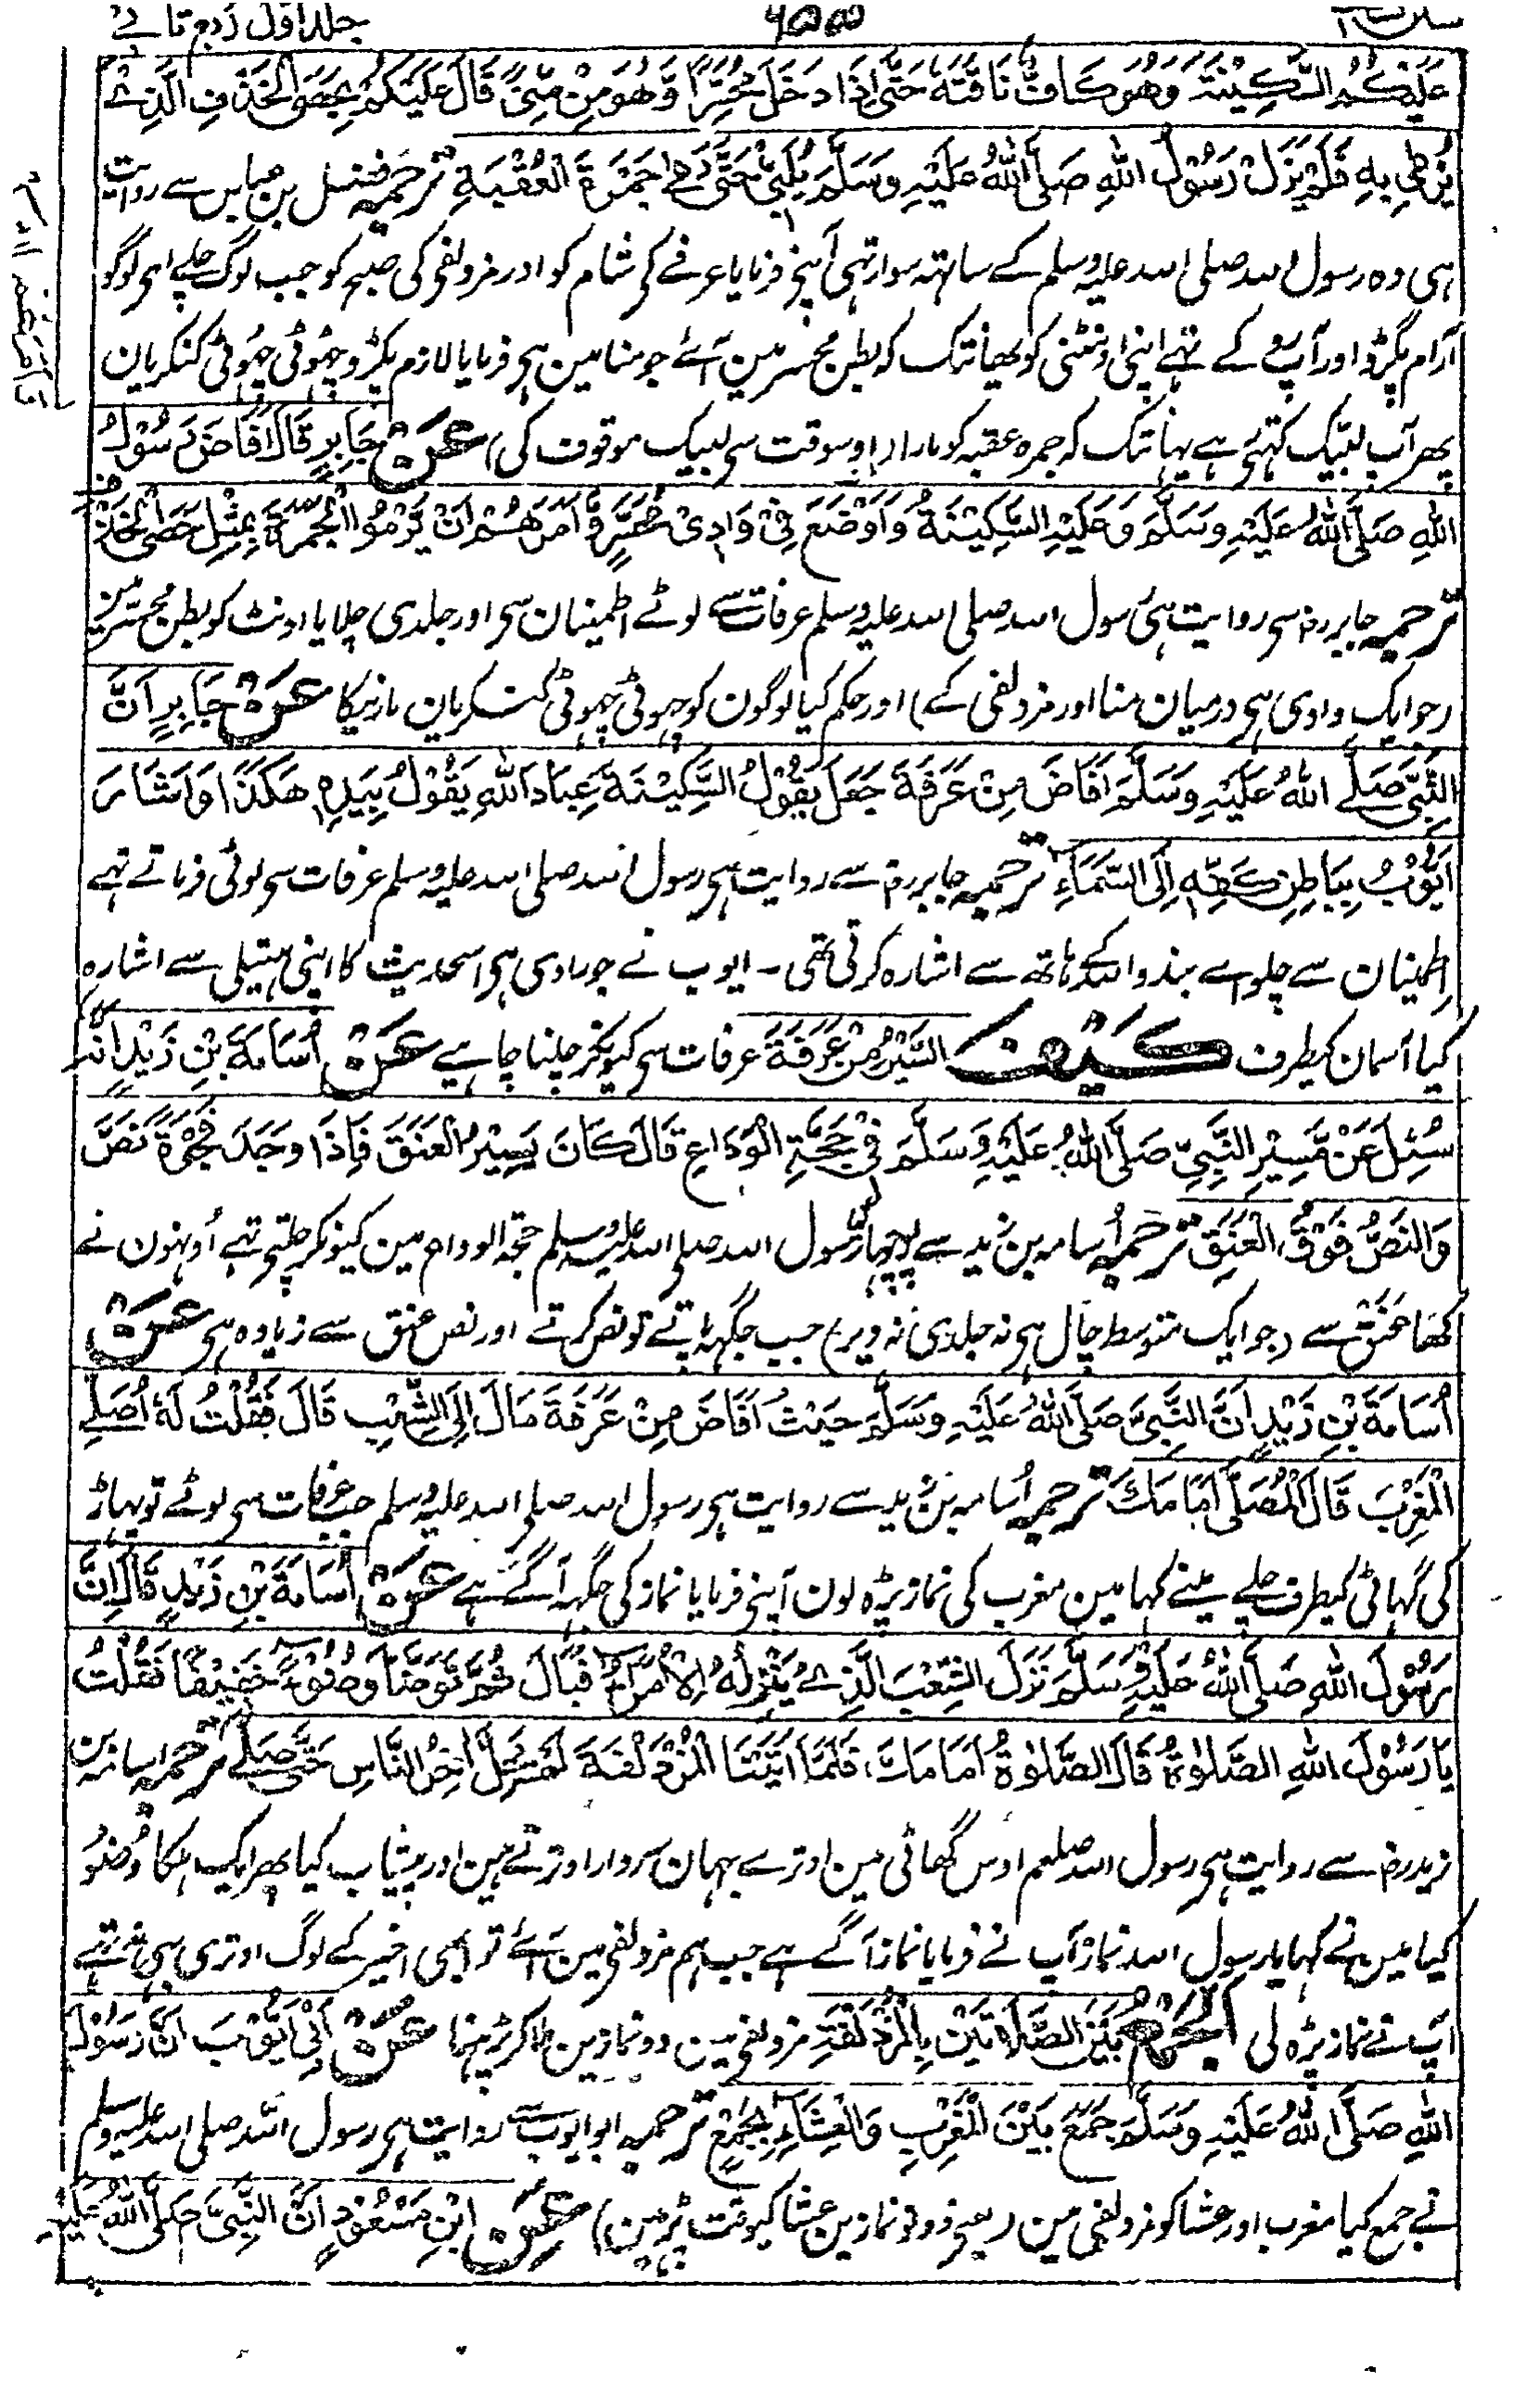 جلد اول ربع ثانے
عَلَيْكُمُ السَّكِيْنَةَ وَهُوَ كَافٌّ نَاقَتَهٗ حَتّٰى اِذَا دَخَلَ مُحَسِّرًا وَّهُوَ مِنْ مِّنًى قَالَ عَلَيْكُمْ بِحَصَى الْخَذْفِ الَّذِىْ
يُرْمٰى بِهٖ فَلَمْ يَزَلْ رَسُوْلُ اللهِ صَلَّى اللهُ عَلَيْهِ وَسَلَّمَ يُلَبِّىْ حَتّٰى رَمٰے جَمْرَةَ الْعُقْبَةِ ترجمہ فضل بن عباس سے روایت
ہی وہ رسول اللہ صلی اللہ علیہ وسلم کے ساتہہ سوار تہی آپنے فرمایا عرفے کی شام کو اور مزدلفی کی صبح کو جب لوگ چلے ای لوگو
آرام پکڑو اور آپ روکے تہے اپنی اونٹنی کو یہانتک کہ بطن محسر مین آئے جو منا مین ہی فرمایا لازم پکڑو چہوٹی چہوٹی کنکریان
پھر آپ لبیک کہتے رہے یہانتک کہ جمرہ عقبہ کو مارا (اوسوقت سی لبیک موقوف کی) عَنْ جَابِرٍ قَالَ اَفَاضَ رَسُوْلُ
اللهِ صَلَّى اللهُ عَلَيْهِ وَسَلَّمَ وَعَلَيْهِ السَّكِيْنَةُ وَاَوْضَعَ فِىْ وَادِىْ مُحَسِّرٍ وَّاَمَرَهُمْ اَنْ يَّرْمُوا الْجَمْرَةَ بِمِثْلِ حَصَى الْخَذْفِ
ترجمہ جابر رض سی روایت ہی رسول اللہ صلی اللہ علیہ وسلم عرفات سے لوٹے اطمینان سی اور جلدی چلایا اونٹ کو بطن محسر مین
(جو ایک وادی ہی درمیان منا اور مزدلفی کے) اور حکم کیا لوگون کو چہوٹی چہوٹی کنکریان مارنیکا عَنْ جَابِرٍ اَنَّ
النَّبِىَّ صَلَّے اللهُ عَلَيْهِ وَسَلَّمَ اَفَاضَ مِنْ عَرَفَةَ جَعَلَ يَقُوْلُ السَّكِيْنَةَ عِبَادَ اللهِ يَقُوْلُ بِيَدِهٖ هٰكَذَا وَاَشَارَ
اَيُّوْبُ بِبَاطِنِ كَفِّهٖ اِلَى السَّمَآءِ ترجمہ جابر رض سے روایت ہی رسول اللہ صلی اللہ علیہ وسلم عرفات سی لوٹی فرماتے تہے
اطمینان سے چلو اے بندو اللہ کے ہاتھ سے اشارہ کرتی تھی۔ ایوب نے جو راوی ہی اسحدیث کا اپنی ہتیلی سے اشارہ
کیا آسمان کیطرف كَيْفَ السَّيْرُ مِنْ عَرَفَةَ عرفات سی کیونکر چلنا چاہیے عَنْ اُسَامَةَ بْنِ زَيْدٍ اَنَّهٗ
سُئِلَ عَنْ مَّسِيْرِ النَّبِىِّ صَلَّى اللهُ عَلَيْهِ وَسَلَّمَ فِىْ حَجَّةِ الْوَدَاعِ قَالَ كَانَ يَسِيْرُ الْعَنَقَ فَاِذَا وَجَدَ فَجْوَةً نَصَّ
وَالنَّصُّ فَوْقَ الْعَنَقِ ترجمہ اُسامہ بن زید سے پوچہا رسول اللہ صلی اللہ علیہ وسلم حجۃ الوداع مین کیونکر چلتی تہے اُونہون نے
کہا عنق سے (جو ایک متوسط چال ہی نہ جلدی نہ دیر) جب جگہہ پاتے تو نص کرتے اور نص عنق سے زیادہ ہی عَنْ
اُسَامَةَ بْنِ زَيْدٍ اَنَّ النَّبِىَّ صَلَّى اللهُ عَلَيْهِ وَسَلَّمَ حَيْثُ اَفَاضَ مِنْ عَرَفَةَ مَالَ اِلَى الشِّعْبِ قَالَ فَقُلْتُ لَهٗ اُصَلِّے
الْمَغْرِبَ قَالَ الْمُصَلّٰى اَمَامَكَ ترجمہ اُسامہ بن زید سے روایت ہی رسول اللہ صلی اللہ علیہ وسلم جب عرفات سی لوٹے تو پہاڑ
کی گہاٹی کیطرف چلے مینے کہا مین مغرب کی نماز پڑہ لون آپنے فرمایا نماز کی جگہہ آگے ہے عَنْ اُسَامَةَ بْنِ زَيْدٍ قَالَ اِنَّ
رَسُوْلَ اللهِ صَلَّى اللهُ عَلَيْهِ وَسَلَّمَ نَزَلَ الشِّعْبَ الَّذِىْ يَنْزِلُهُ الْاُمَرَآءُ فَبَالَ ثُمَّ تَوَضَّأَ وُضُوْءً خَفِيْفًا فَقُلْتُ
يَا رَسُوْلَ اللهِ الصَّلٰوةُ قَالَ الصَّلٰوةُ اَمَامَكَ فَلَمَّا اَتَيْنَا الْمُزْدَلِفَةَ لَمْ يَحِلَّ اٰخِرُ النَّاسِ حَتّٰى صَلّٰے ترجمہ اسامہ بن
زید رض سے روایت ہی رسول اللہ صلعم اوس گھاٹی مین اوترے جہان سردار اوترتے ہین اور پیشاب کیا پھر ایک ہلکا وضو
کیا مین نے کہا یا رسول اللہ نماز آپ نے فرمایا نماز آگے ہے جب ہم مزدلفی مین آئے تو ابھی اخیر کے لوگ اوتری بھی نہ تہے
آپ نے نماز پڑہ لی اَلْجَمْعُ بَيْنَ الصَّلَاتَيْنِ بِالْمُزْدَلِفَةِ مزدلفی مین دو نمازین ملا کر پڑہنا عَنْ اَبِىْ اَيُّوْبَ اَنَّ رَسُوْلَ
اللهِ صَلَّى اللهُ عَلَيْهِ وَسَلَّمَ جَمَعَ بَيْنَ الْمَغْرِبِ وَالْعِشَآءِ بِجَمْعٍ ترجمہ ابو ایوب سے روایت ہی رسول اللہ صلی اللہ علیہ وسلم
نے جمع کیا مغرب اور عشا کو مزدلفی مین (یعنے دونو نمازین عشا کیوقت پڑہین) عَنِ ابْنِ مَسْعُوْدٍ اَنَّ النَّبِىَّ صَلَّى اللهُ عَلَيْهِ